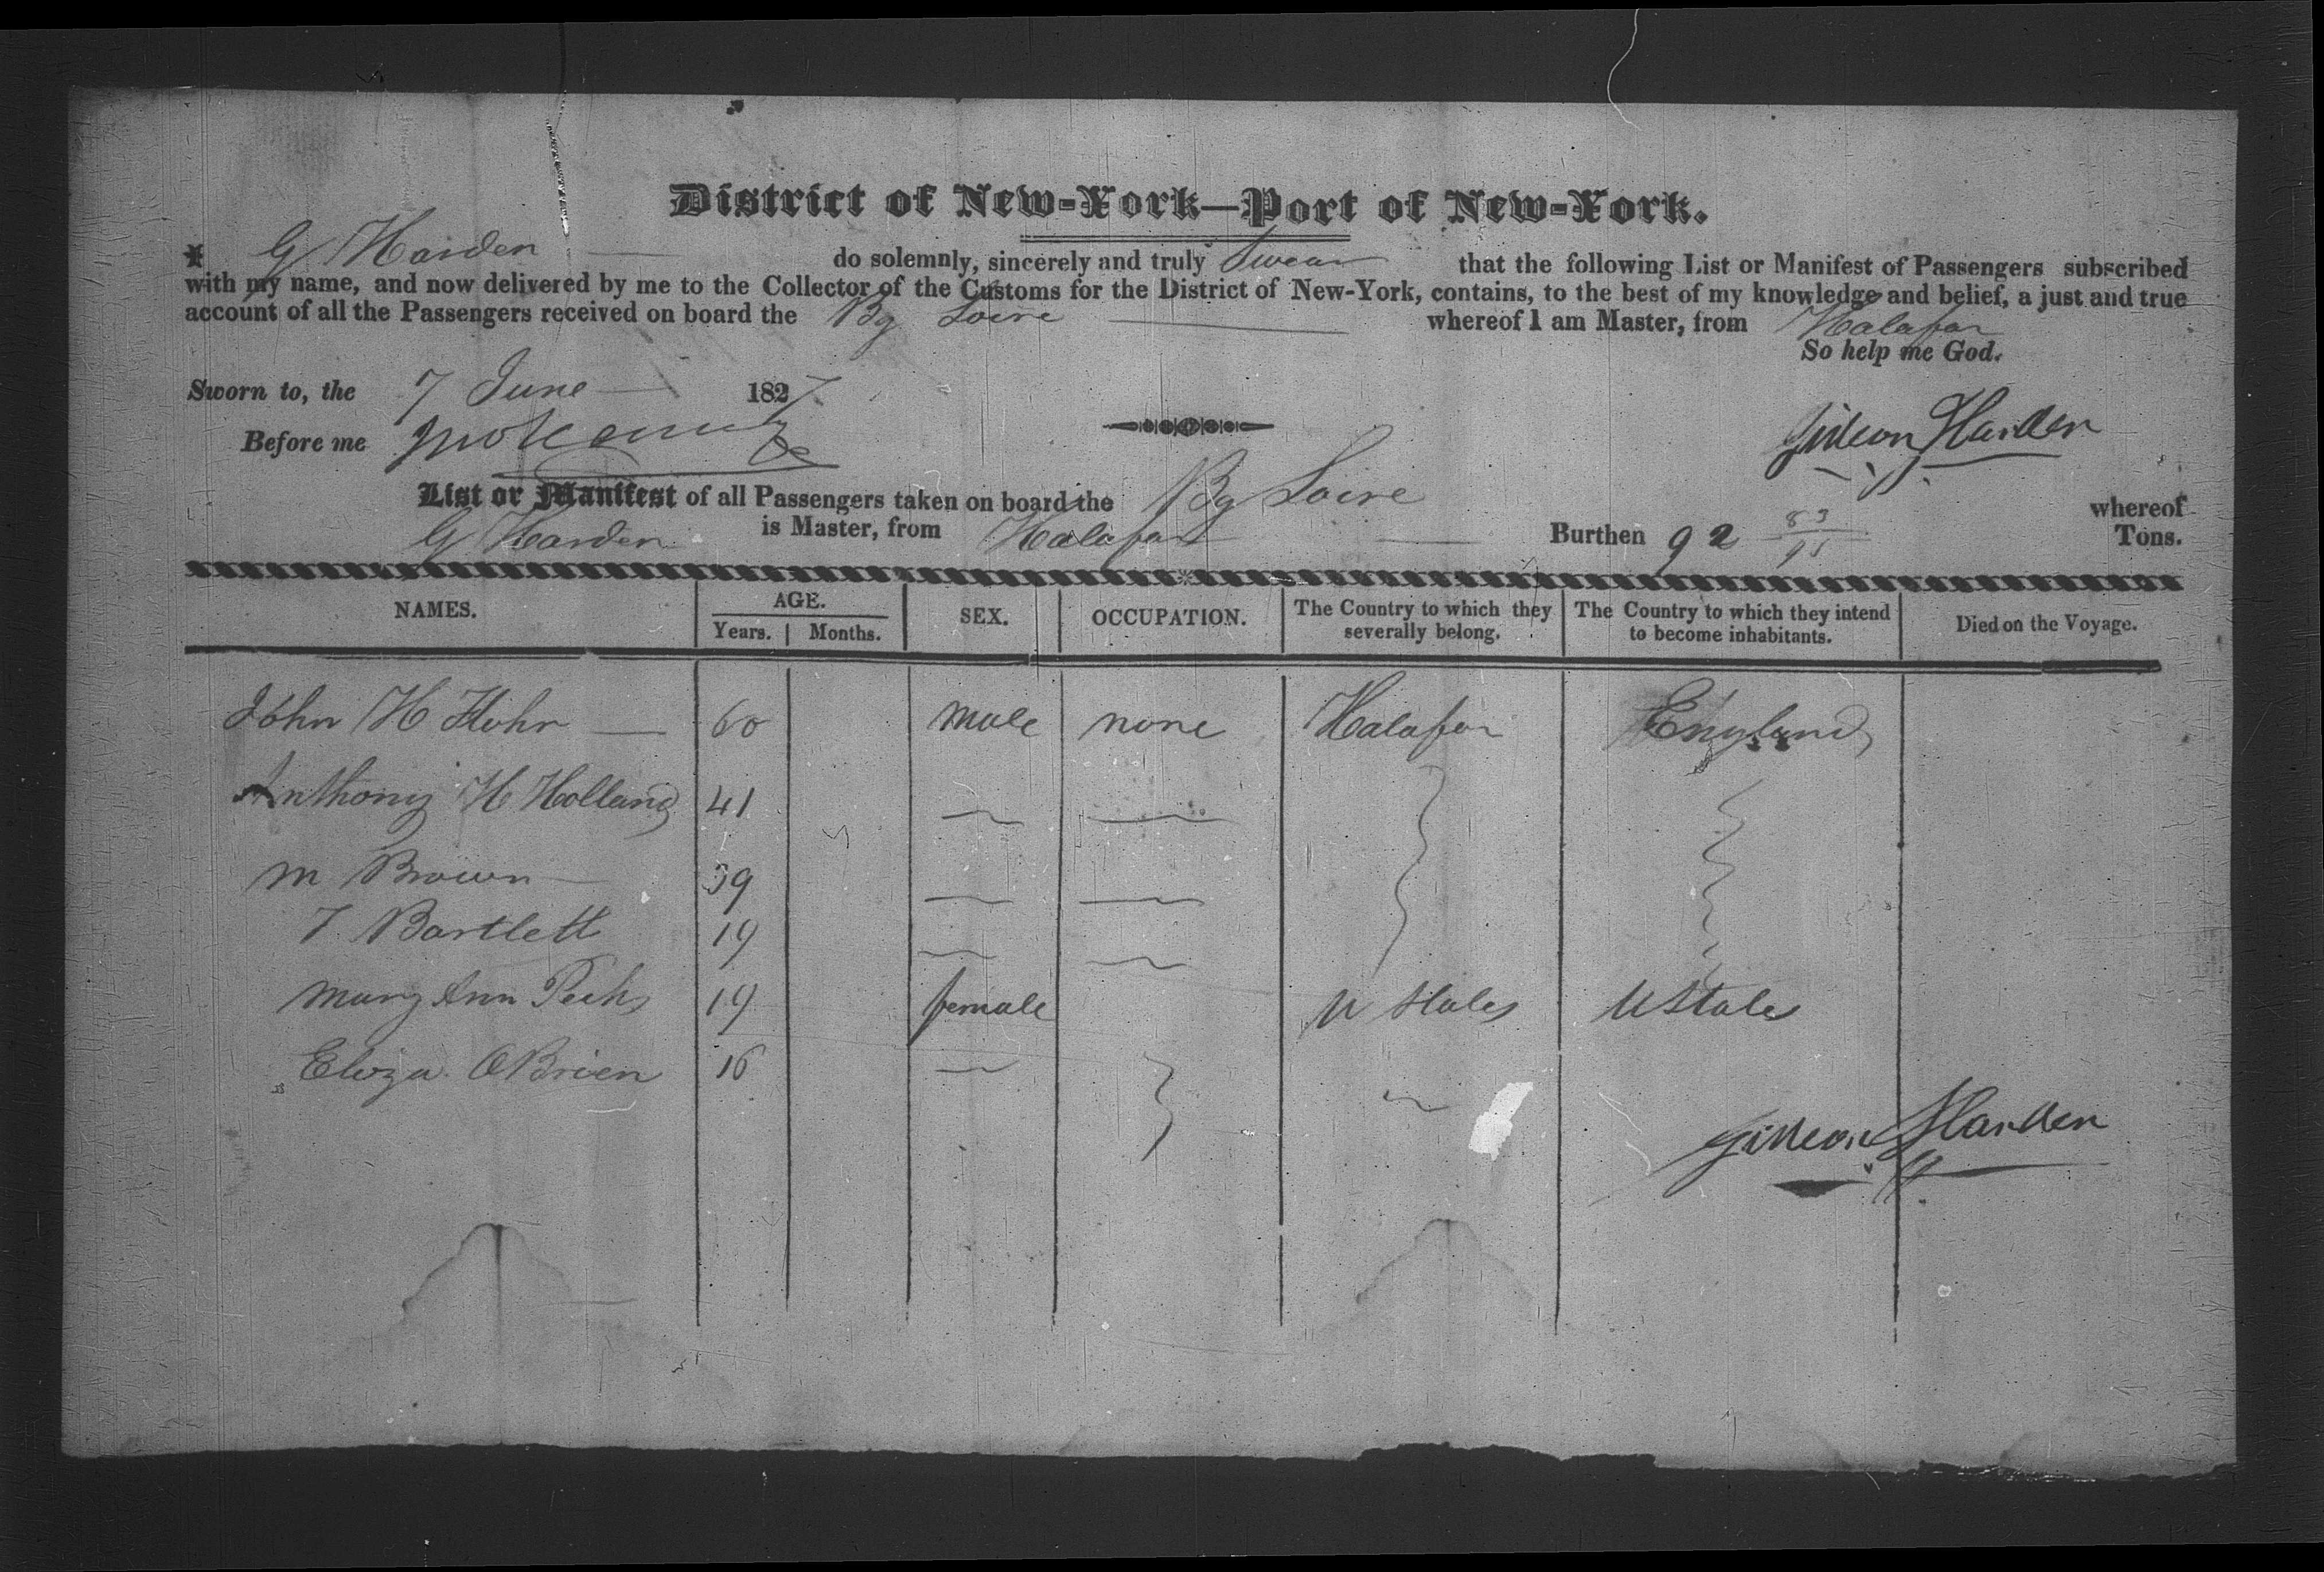 District of New-York—Port of New-York.
I G Harden do solemnly, sincerely and truly Swear that the following List or Manifest of Passengers subscribed
with my name, and now delivered by me to the Collector of the Customs for the District of New-York, contains, to the best of my knowledge and belief, a just and true
account of all the Passengers received on board the Bg Loire whereof I am Master, from Halafax
So help me God.
Sworn to, the 7 June 1827
Before me
Gideon Harden
List or Manifest of all Passengers taken on board the Bg Loire whereof
G Harden is Master, from Halafax Burthen 92 83/95 Tons.
NAMES. AGE. SEX. OCCUPATION. The Country to which they severally belong. The Country to which they intend to become inhabitants. Died on the Voyage.
Years. Months.
John H Flohr 60 male none Halafax England
Anthony H Holland 41
M Brown 39
T. Bartlett 19
Mary Ann 19 female U States U States
Eliza OBrien 16
Gideon Harden